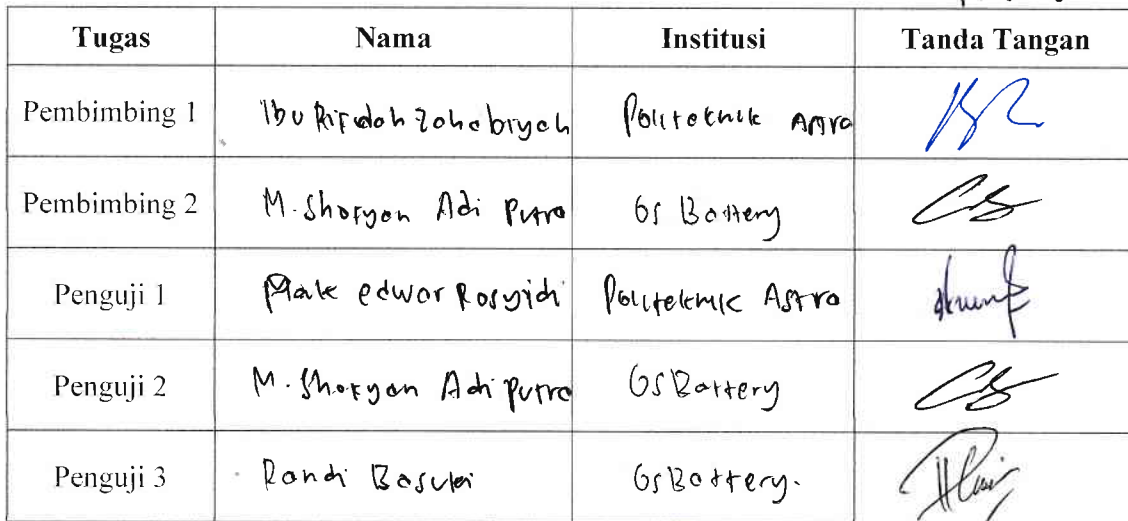 Tugas Nama Institusi Tanda Tangan
Pembimbing 1 Ibu Rifdah Zahabiyah Politeknik Astra
Pembimbing 2 M. Shofyan Adi Putra GS Battery
Penguji 1 Pak edwar Rosyidi Politeknik Astra
Penguji 2 M. Shofyan Adi Putra GS Battery
Penguji 3 Randi Basuki GS Battery.